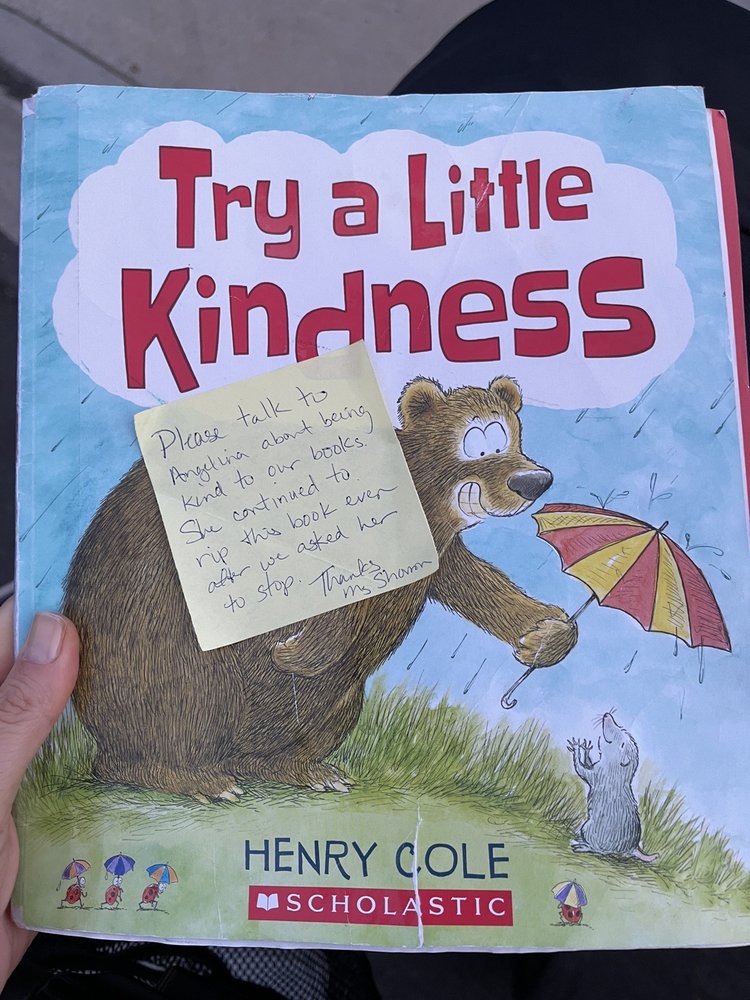 Try a Little
Kindness
Please talk to
Angelina about being
kind to our books.
She continued to
rip this book even
after we asked her
to stop. Thanks,
Ms Sharon
HENRY COLE
SCHOLASTIC